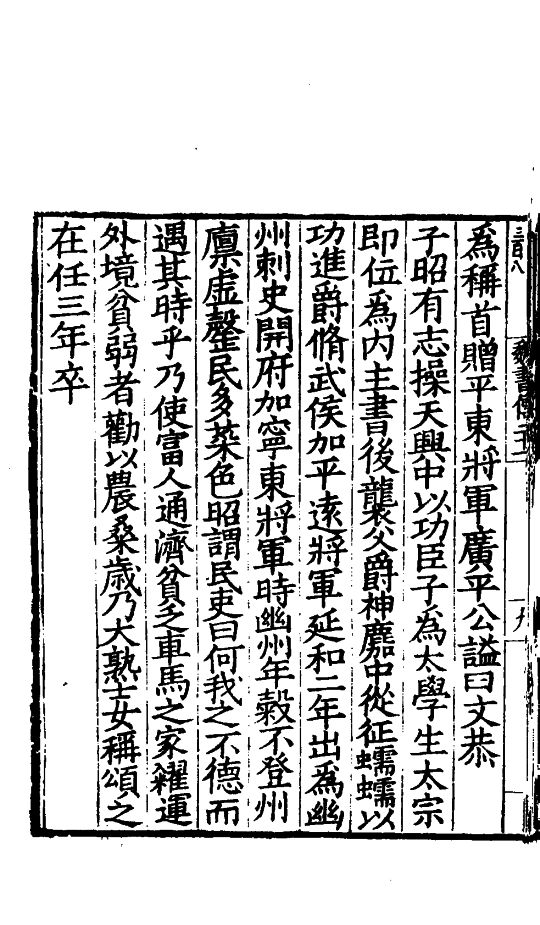 三百八
魏書傳二十二
九
為稱首贈平東將軍廣平公謚曰文恭
子昭有志操天興中以功臣子為太學生太宗
即位為内主書後襲父爵神䴥中從征蠕蠕以
功進爵脩武侯加平遠將軍延和二年出為幽
州刺史開府加寧東將軍時幽州年榖不登州
廪虛罄民多菜色昭謂民吏曰何我之不德而
遇其時乎乃使富人通濟貧乏車馬之家糴運
外境貧弱者勸以農桑歲乃大熟士女稱頌之
在任三年卒